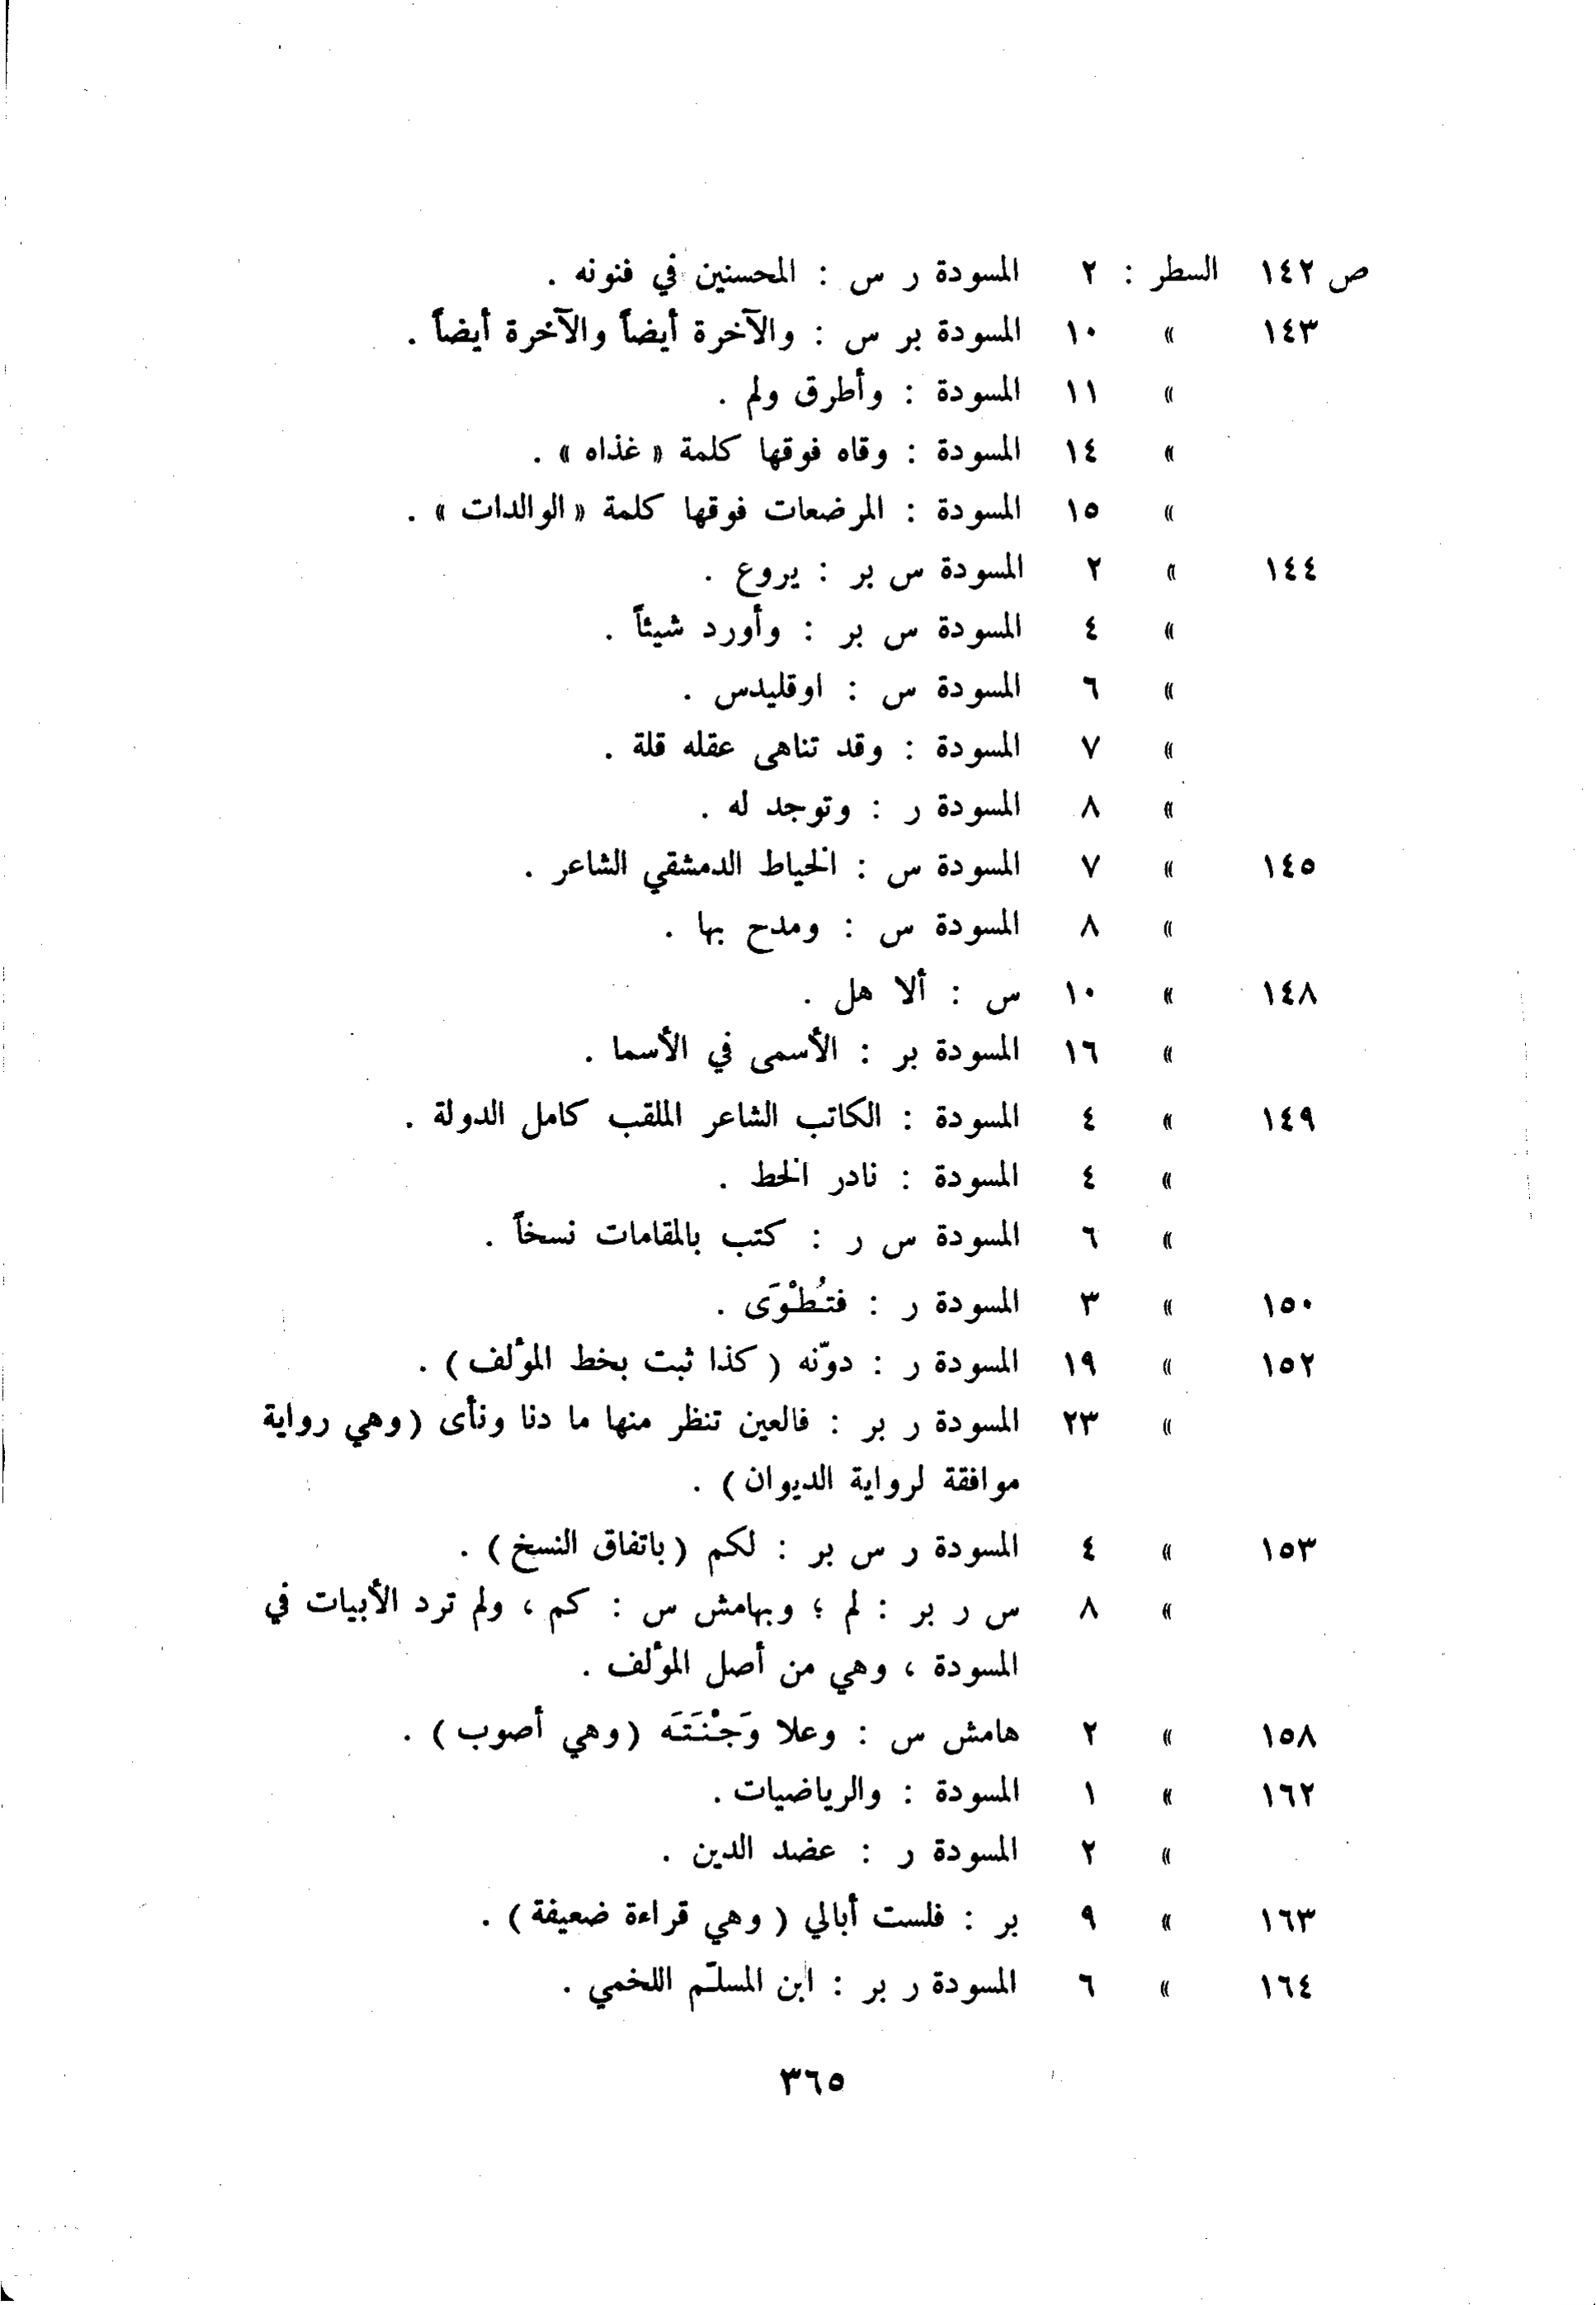 ص ١٤٢ السطر : ٢ المسودة ر س : المحسنين في فنونه .
١٤٣ » ١٠ المسودة بر س : والآخرة أيضاً والآخرة أيضاً .
» ١١ المسودة : وأطرق ولم .
» ١٤ المسودة : وقاه فوقها كلمة « غذاه » .
» ١٥ المسودة : المرضعات فوقها كلمة « الوالدات » .
١٤٤ » ٢ المسودة س بر : يروع .
» ٤ المسودة س بر : وأورد شيئاً .
» ٦ المسودة س : اوقليدس .
» ٧ المسودة : وقد تناهى عقله قلة .
» ٨ المسودة ر : وتوجد له .
١٤٥ » ٧ المسودة س : الخياط الدمشقي الشاعر .
» ٨ المسودة س : ومدح بها .
١٤٨ » ١٠ س : ألا هل .
» ١٦ المسودة بر : الأسمى في الأسما .
١٤٩ » ٤ المسودة : الكاتب الشاعر الملقب كامل الدولة .
» ٤ المسودة : نادر الخط .
» ٦ المسودة س ر : كتب بالمقامات نسخاً .
١٥٠ » ٣ المسودة ر : فتُطْوَى .
١٥٢ » ١٩ المسودة ر : دوّنه ( كذا ثبت بخط المؤلف ) .
» ٢٣ المسودة ر بر : فالعين تنظر منها ما دنا ونأى ( وهي رواية
موافقة لرواية الديوان ) .
١٥٣ » ٤ المسودة ر س بر : لكم ( باتفاق النسخ ) .
» ٨ س ر بر : لم ؛ وبهامش س : كم ، ولم ترد الأبيات في
المسودة ، وهي من أصل المؤلف .
١٥٨ » ٢ هامش س : وعلا وَجْنَتَه ( وهي أصوب ) .
١٦٢ » ١ المسودة : والرياضيات .
» ٢ المسودة ر : عضد الدين .
١٦٣ » ٩ بر : فلست أبالي ( وهي قراءة ضعيفة ) .
١٦٤ » ٦ المسودة ر بر : ابن المسلّم اللخمي .
٣٦٥